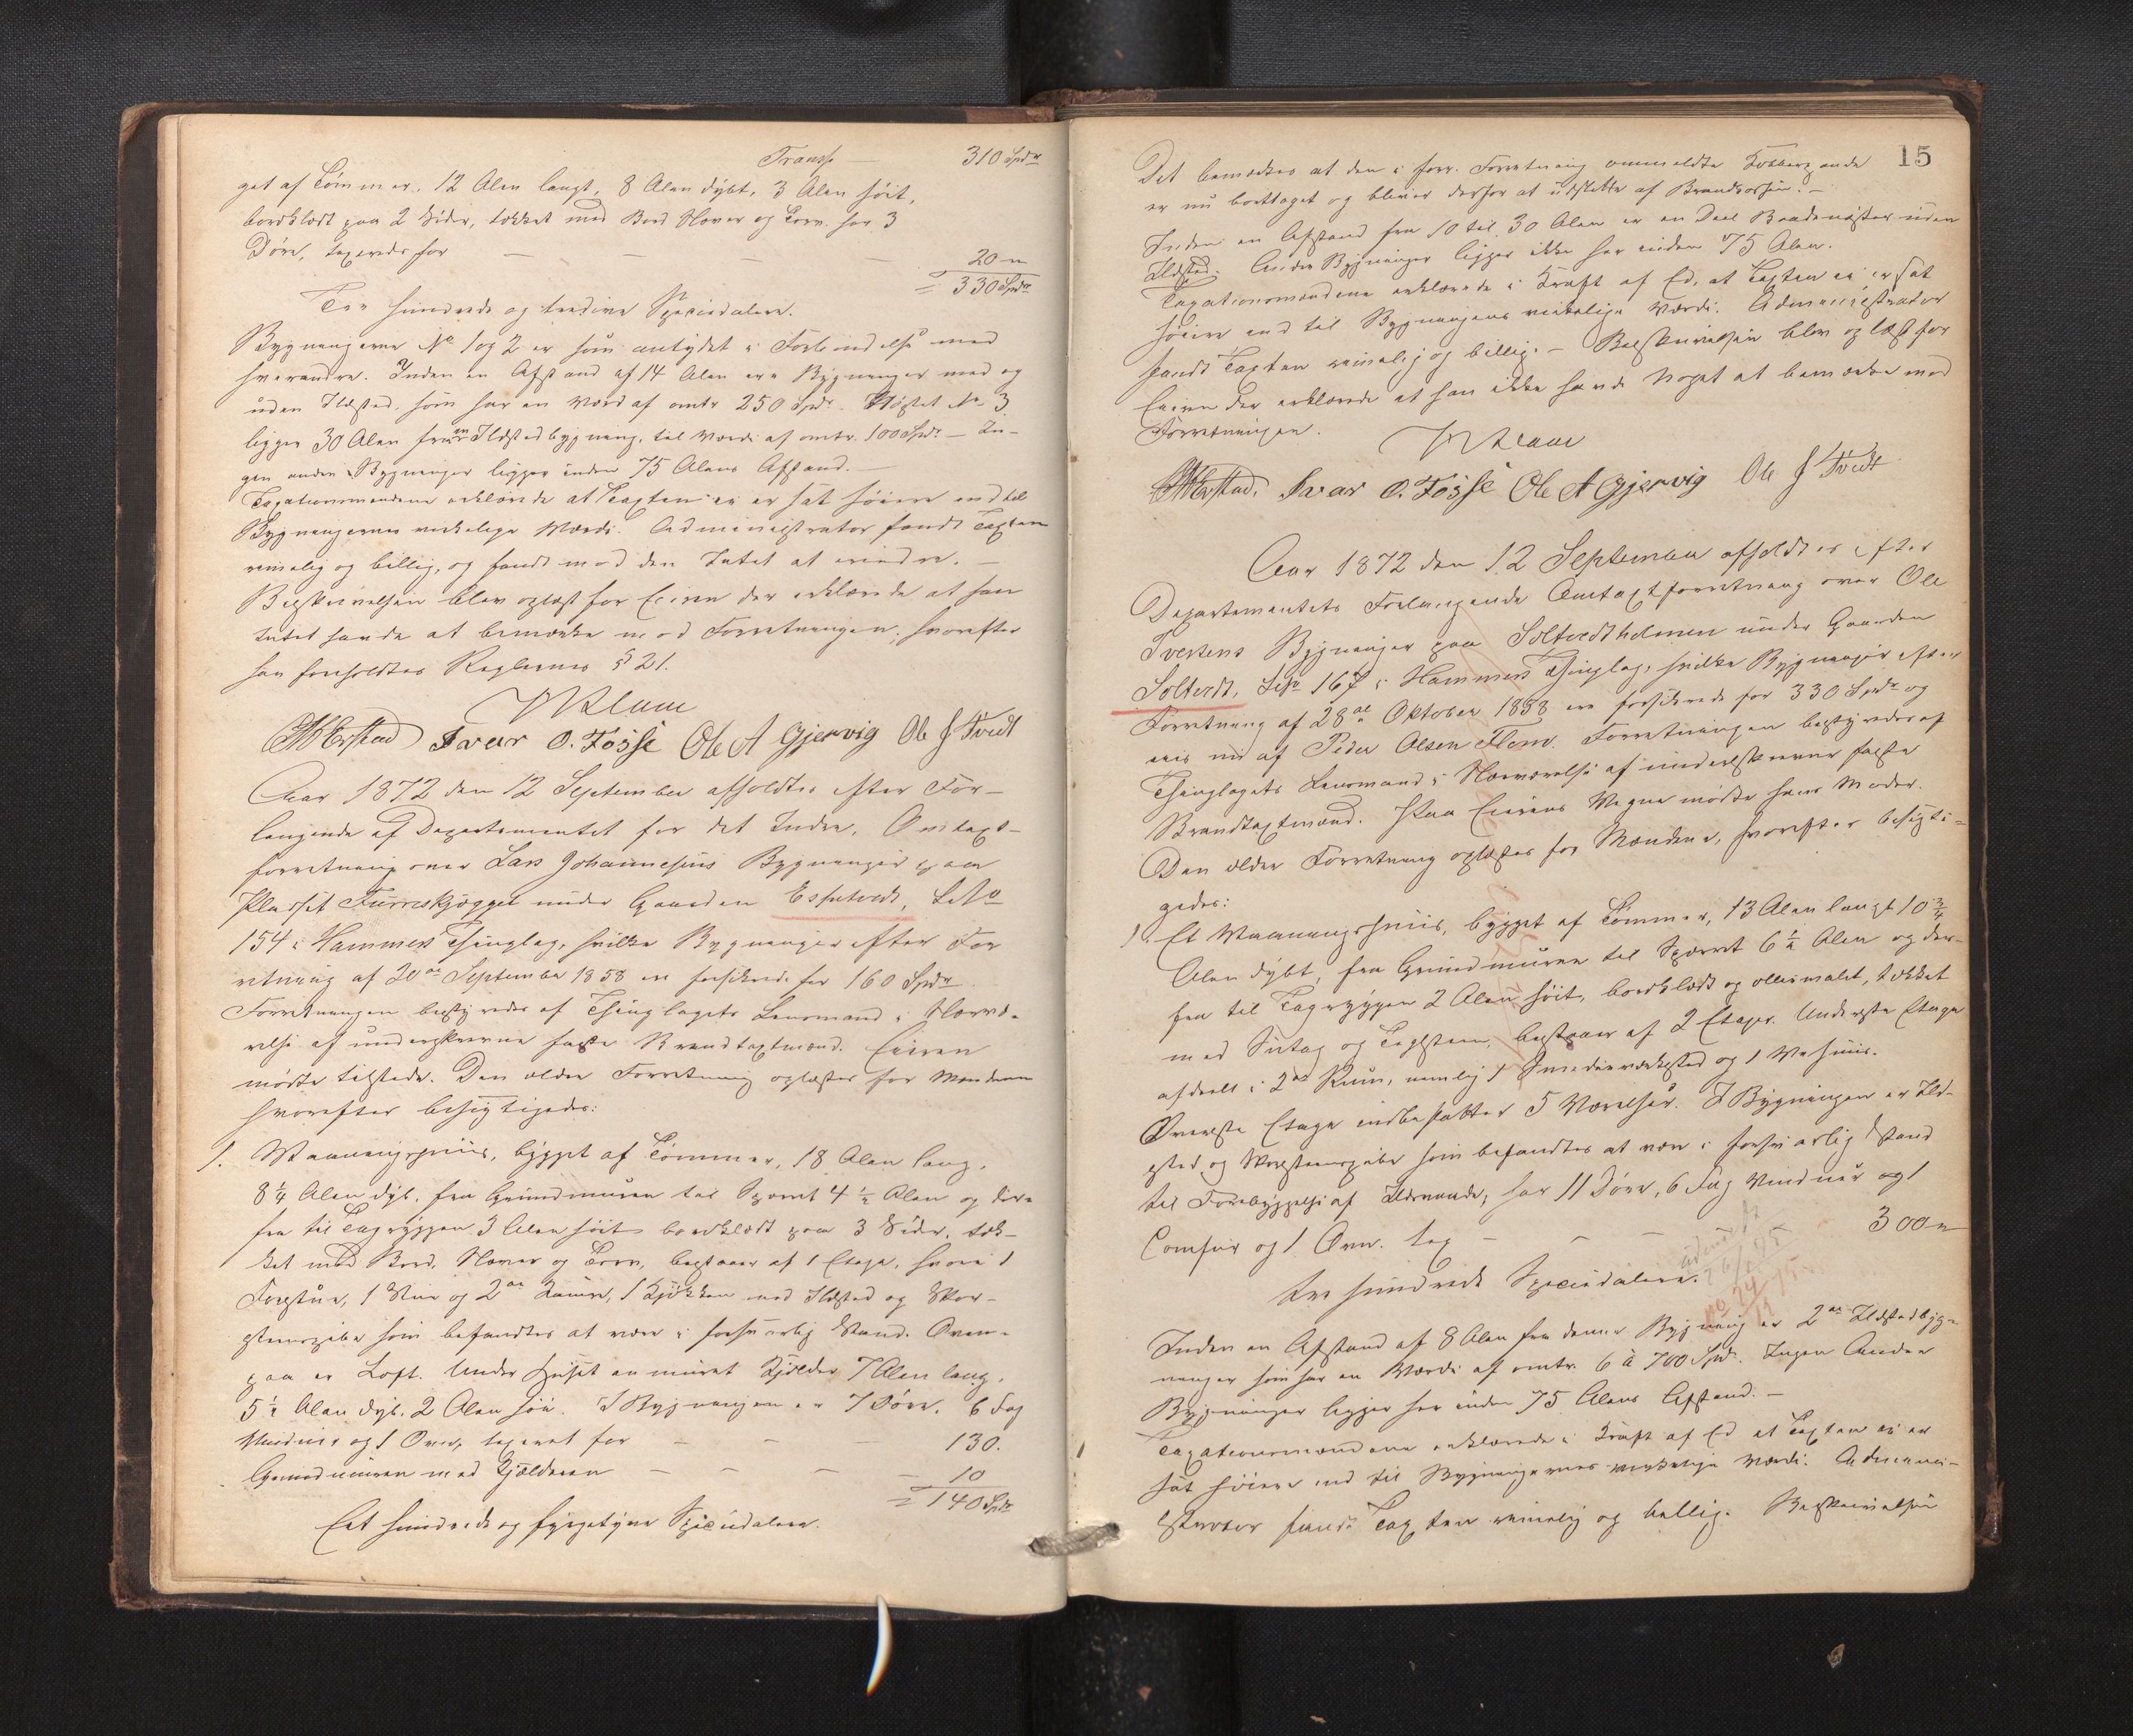 Transp. — 310 Spdr
get af Tømmer, 12 Alen langt, 8 Alen dybt, 3 Alen høit,
bordklædt paa 2 Sider, tækket med Bord Næver og Torv har 3
Døre, taxeredes for — — — — 20 "
= 330 Spdr
Tre hundrede og tredive Speciedaler.
Bygningerne No 1 og 2 er som antydet i Forbindelse med
hverandre. Inden en Afstand af 14 Alen ere Bygninger med og
uden Ildsted, som har en Værd af omtr 250 Spdr. No 3
ligger 30 Alen fra en Ildstedbygning, til Værdi af omtr. 100 Spdr — In-
gen andre Bygninger ligger inden 75 Alens Afstand. —
Taxationsmændene erklærede at Taxten ei er sat høiere end til
Bygningernes virkelige Værdi. Administrator fandt Taxten
rimelig og billig, og fandt mod den Intet at erindre. —
Beskrivelsen blev oplæst for Eieren der erklærede at han
Intet havde at bemærke mod Forretningen, hvorefter
han foreholdtes Reglernes § 21.
Ivar O. Fosse Ole A Gjervig Ole J Tvedt
Aar 1872 den 12 September afholdtes efter For-
langende af Departementet for det Indre, Omtaxt-
forretning over Lars Johannesens Bygninger paa
Pladset under Gaarden LNo
154 i Hammers Thinglag, hvilke Bygninger efter For
retning af 20de September 1858 ere forsikrede for 160 Spdr
Forretningen bestyredes af Thinglagets Lensmand i Nærvæ-
relse af underskrevne faste Brandtaxtmænd. Eieren
mødte tilstede. Den ældre Forretning oplæstes for Mændene
hvorefter besigtigedes:
1. Vaaningshuus, bygget af Tømmer, 18 Alen lang,
8 1/4 Alen dyb, fra Grundmuren til Sperret 4 1/2 Alen og der-
fra til Tagryggen 3 Alen høit bordklædt paa 3 Sider, tæk-
ket med Bord, Næver og Torv, bestaaer af 1 Etage, hvori 1
Forstue, 1 Stue og 2de Kamre, 1 Kjøkken med Ildsted og Skor-
stenspibe som befandtes at være i forsvarlig Stand. Oven-
paa er Loft. Under Huset en muret Kjelder 7 Alen lang,
5 1/2 Alen dyb, 2 Alen høi. I Bygningen er 7 Døre, 6 Fag
Vinduer og 1 Ovn, taxeret for — — — 130.
Grundmuren med Kjælderen — — — — 10
= 140 Spdr
Eet hundrede og fyrgetyve Speciedaler.
15
Det bemærkes at den i forr. Forretning ommeldte
er nu borttaget og bliver derfor at udslette af Brandkassen. —
Inden en Afstand fra 10 til 30 Alen er en Deel Baadenøster uden
Ildsted. Andre Bygninger ligger ikke her inden 75 Alen.
Taxationsmændene erklærede i Kraft af Ed, at Taxten ei er sat
høiere end til Bygningens virkelige Værdi. Administrator
fandt Taxten rimelig og billig. — Beskrivelsen blev oplæst for
Eieren der erklærede at han ikke havde Noget at bemærke mod
Forretningen.
Ivar O. Fosse Ole A Gjervig Ole J Tvedt
Aar 1872 den 12 September afholdtes efter
Departementets Forlangende Omtaxtforretning over Ole
Iversens Bygninger paa Soltvedtholmen under Gaarden
Soltvedt, LNo 167 i Hammers Thinglag, hvilke Bygninger efter
Forretning af 28de Oktober 1858 ere forsikrede for 330 Spdr og
eies nu af Peder Olsen. Forretningen bestyredes af
Thinglagets Lensmand i Nærværelse af underskrevne faste
Brandtaxtmænd. Paa Eierens Vegne mødte hans Moder.
Den ældre Forretning oplæstes for Mændene, hvorefter besigti-
gedes:
1. Et Vaaningshuus, bygget af Tømmer, 13 Alen langt 10 3/4
Alen dybt, fra Grundmuren til Sperret 6 1/2 Alen og der-
fra til Tagryggen 2 Alen høit, bordklædt og oliemalet, tækket
med Sutag og Tagsteen, bestaaer af 2 Etager. Underste Etage
afdeelt i 2de Rum, nemlig 1 Smedieværksted og 1 Vedhuus.
Øverste Etage indbefatter 5 Værelser. I Bygningen er Ild-
sted og Skorstenspibe som befandtes at være i forsvarlig Stand
til Forebyggelse af Ildsvaade, har 11 Døre, 6 Fag Vinduer og 1
Comfur og 1 Ovn. tax — — — 300 "
Tre hundrede Speciedaler.
Inden en Afstand af 8 Alen fra denne Bygning er 2de Ildstedbyg-
ninger som har en Værdi af omtr. 6 à 700 Spdr. Ingen Andre
Bygninger ligger her inden 75 Alens Afstand. —
Taxationsmændene erklærede i Kraft af Ed at Taxten ei er
sat høiere end til Bygningernes virkelige Værdi. Admini-
strator fandt Taxten rimelig og billig. Beskrivelsen